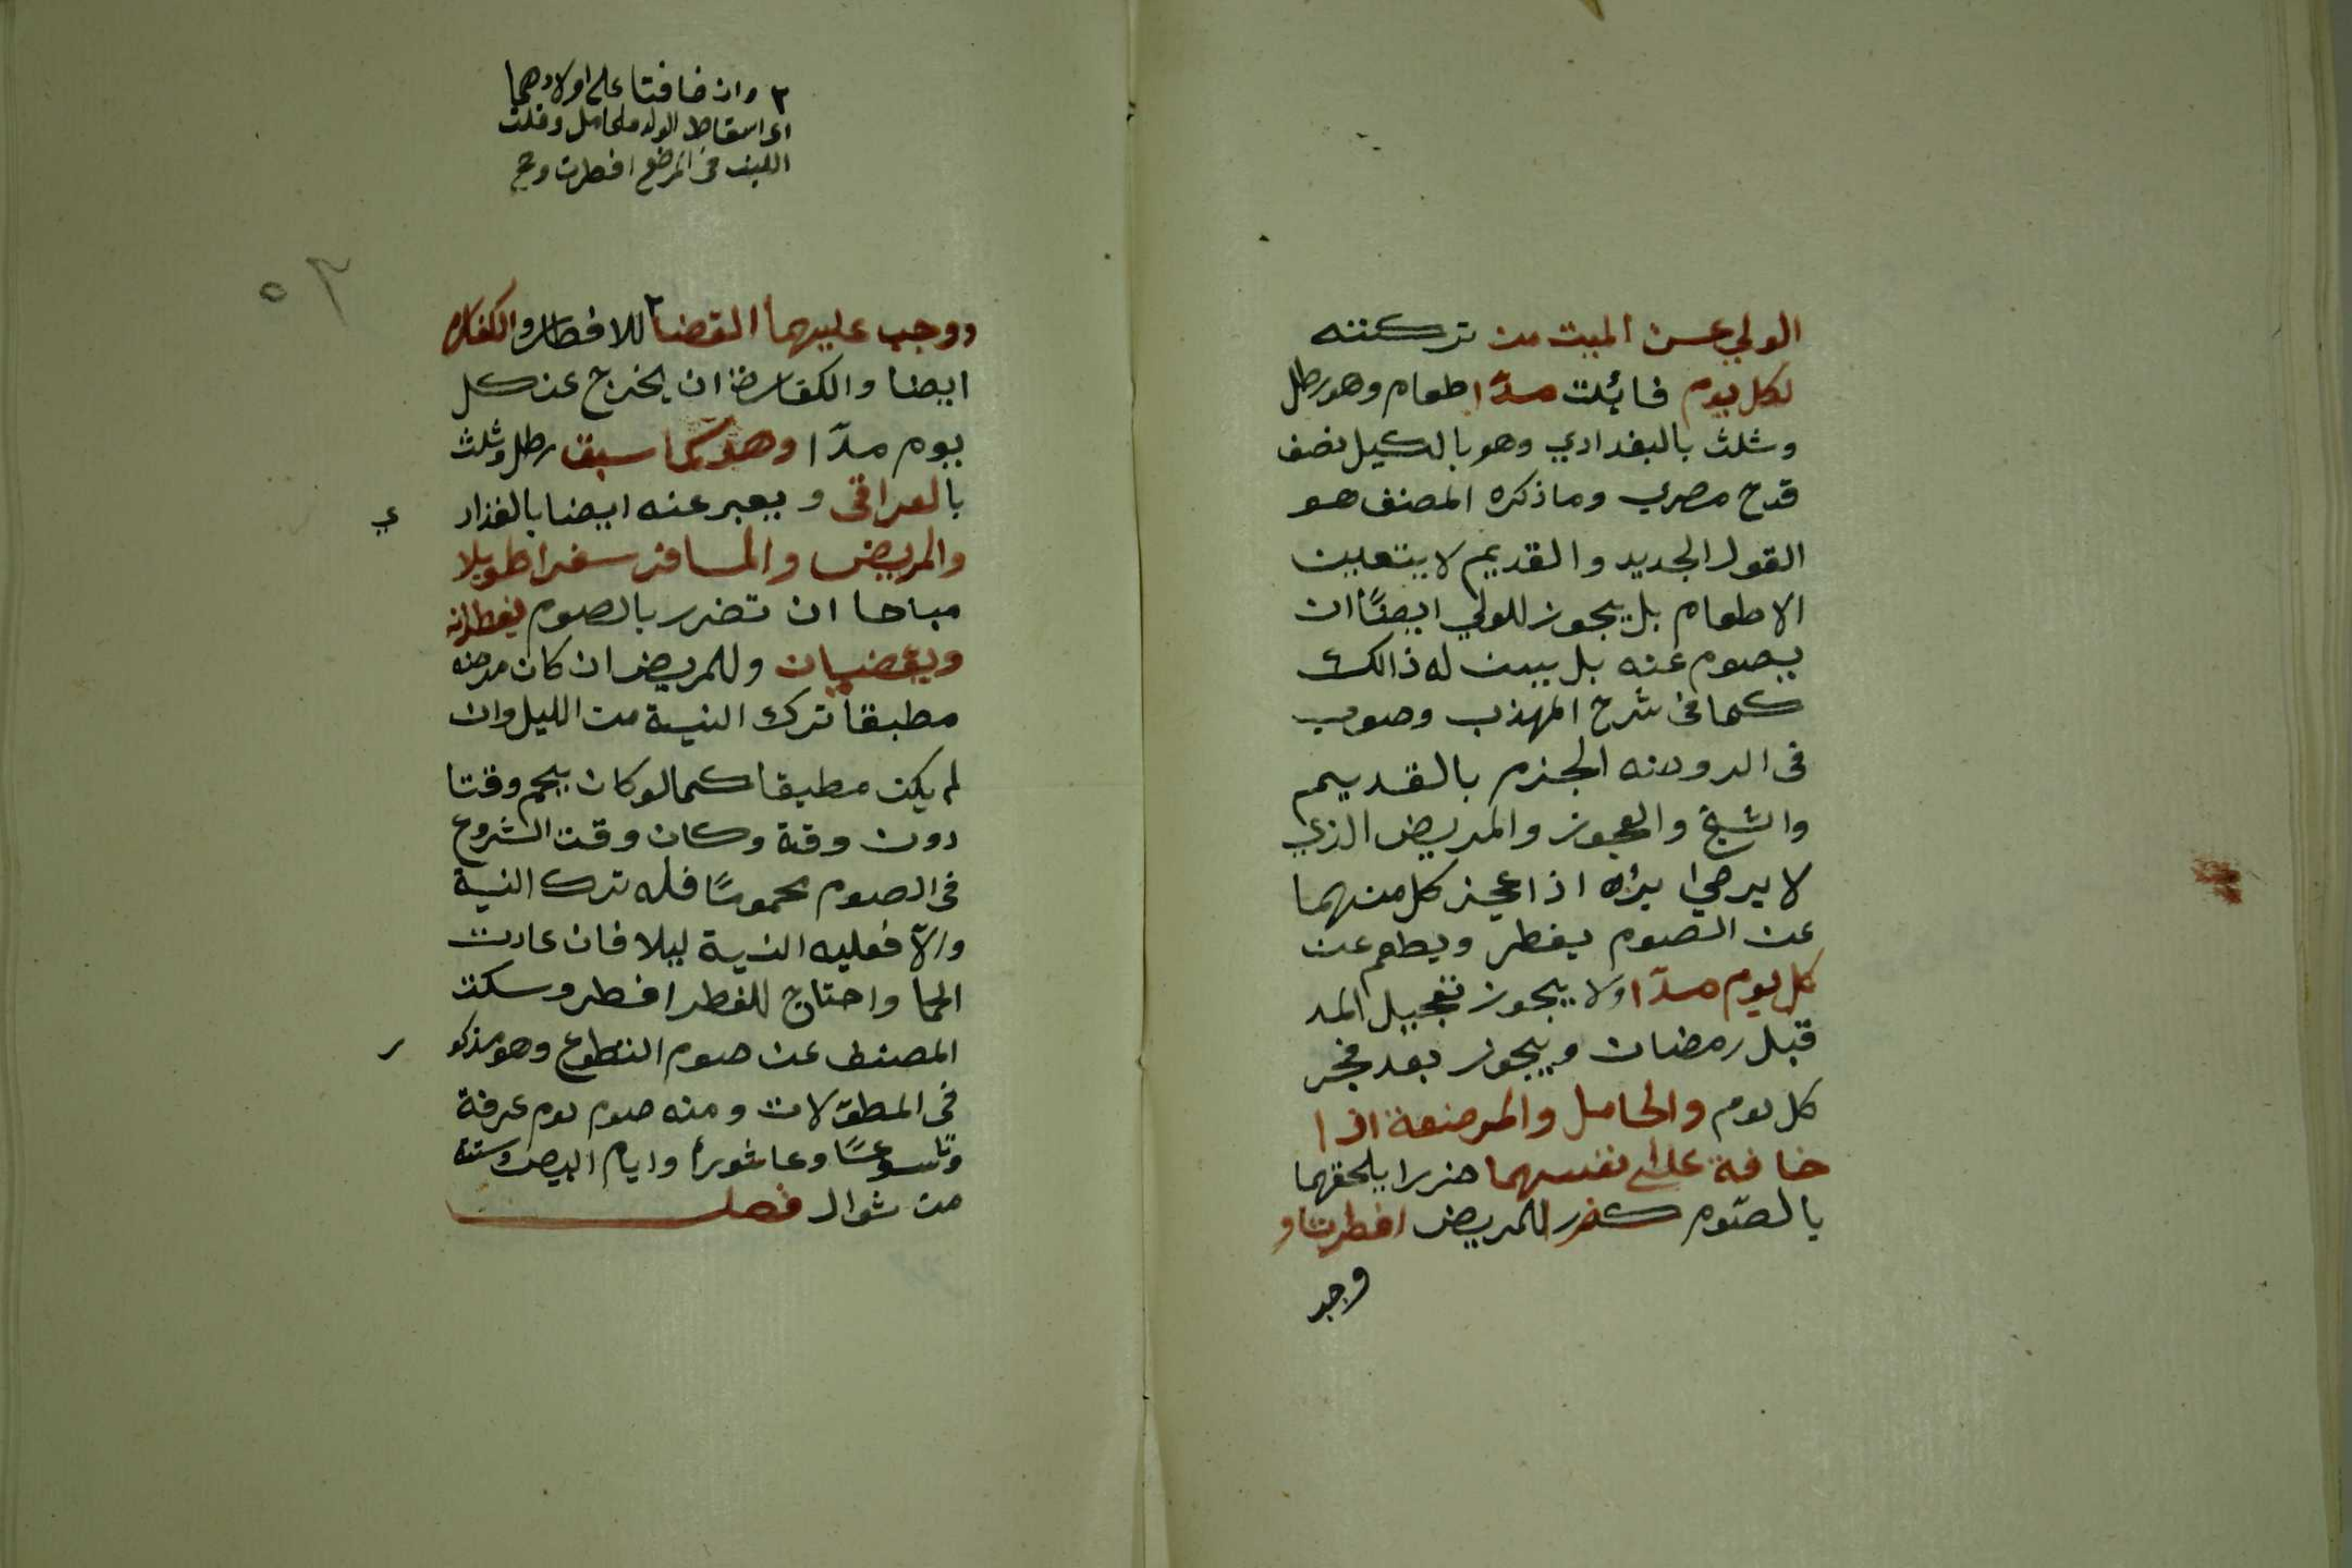 الولي عن الميت من تركته
لكل يوم فائت مدّا طعام وهو رطل
وثلث بالبغدادي وهو بالكيل نصف
قدح مصري وما ذكره المصنف هو
القول الجديد والقديم لا يتعين
الاطعام بل يجوز للولي ايضًا ان
يصوم عنه بل يسن له ذالك
كما فى شرح المهذب وصوب
فى الروضه الجزم بالقديم
والشيخ والعجوز والمريض الذي
لا يرجى برأه اذا عجز كل منهما
عن الصوم يفطر ويطعم عن
كل يوم مدّا ولا يجوز تعجيل المد
قبل رمضان ويجوز بعد فجر
كل يوم والحامل والمرضعة اذا
خافة على نفسهما ضررا يلحقهما
بالصّوم كضرر المريض افطرتا و
وجب
٢ وان خافتا على اولادهما
اى اسقاط الولد ملحامل وقلت
اللبن فى المرضع افطرت وج
٥٦
ووجب عليهما القضا ٢ للافطار والكفاره
ايضا والكفارة ان يخرج عن كل
يوم مدّا وهو كما سبق رطل وثلث
بالعراقى ويعبر عنه ايضا بالغذاد
ي
والمريض والمسافر سفرا طويلا
مباحا ان تضرر بالصوم يفطرانه
ويقضيان وللمريض ان كان مرضه
مطبقا ترك النية من الليل وان
لم يكن مطبقا كما لو كان يحم وقتا
دون وقة وكان وقت الشروع
فى الصوم محمومًا فله ترك النية
والاّ فعليه النية ليلا فان عادت
الحما واحتاج للفطر افطر وسكت
المصنف عن صوم التطوع وهو مذكو
ر
فى المطوّلات ومنه صوم يوم عرفة
وتاسوعًا وعاشورأ وايام البيض وستة
من شوال فصل